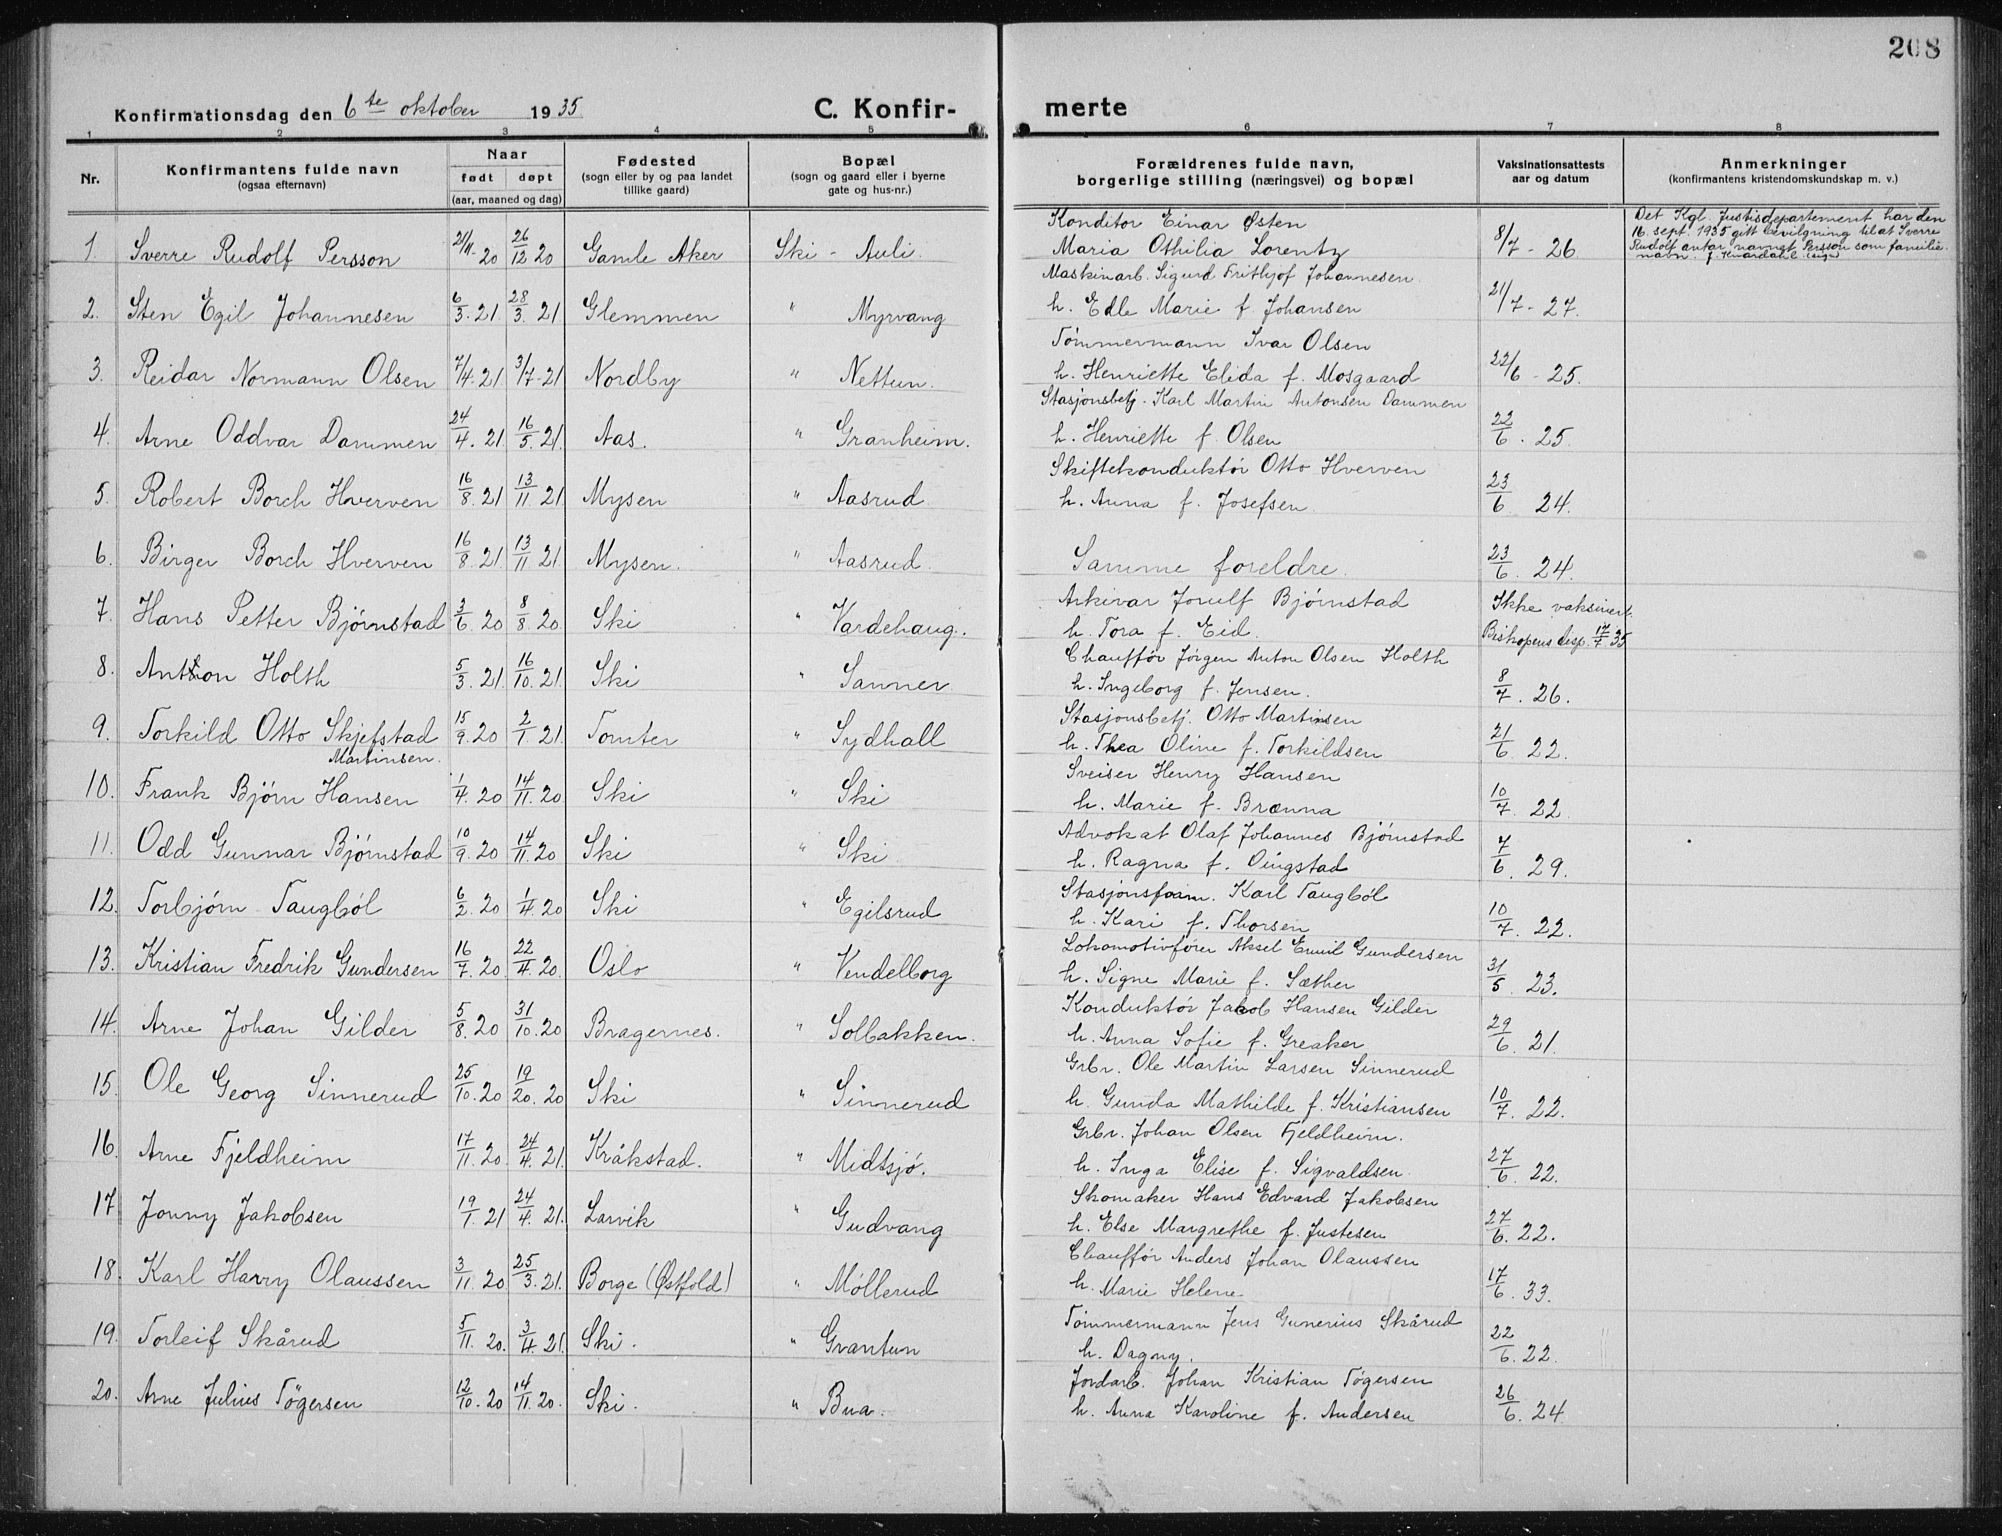 208
Konfirmationsdag den 6te oktober 1935 C. Konfir- merte
1 2 3 4 5 6 7 8
Nr. Konfirmantens fulde navn (ogsaa efternavn) Naar født døpt (aar, maaned og dag) Fødested (sogn eller by og paa landet tillike gaard) Bopæl (sogn og gaard eller i byerne gate og hus-nr.) Forældrenes fulde navn, borgerlige stilling (næringsvei) og bopæl Vaksinationsattests aar og datum Anmerkninger (konfirmantens kristendomskundskap m. v.)
1. Sverre Rudolf Persson 21/11-20 26/12 20 Gamle Aker Ski - Auli. Konditor Einar Østen Maria Othilia Lorentz 8/7 - 26 Det Kgl. Justisdepartement har den 16. sept. 1935 gitt bevilgning til at Sverre Rudolf antar navnet Persson som familienavn. J. Kvardahl (sign)
2. Sten Egil Johannesen 6/3. 21 28/3. 21 Glemmen " Myrvang Maskinarb. Sigurd Frithjof Johannesen h. Edle Marie f. Johansen 21/7 - 27.
3. Reidar Normann Olsen 7/4. 21 3/7-21 Nordby " Nettun. Tømmermann Ivar Olsen h. Henriette Elida f. Mosgaard 22/6 - 25.
4. Arne Oddvar Dammen 24/4. 21 16/5. 21 Aas. " Granheim. Stasjonsbetj. Karl Martin Antonsen Dammen h. Henriette f. Olsen 22/6. 25.
5. Robert Borch Hverven 16/8. 21 13/11. 21 Mysen " Aasrud Skiftekonduktør Otto Hverven h. Anna f. Josefsen 23/6 24.
6. Birger Borch Hverven 16/8. 21 13/11 21 Mysen. " Aasrud. Samme foreldre. 23/6. 24.
7. Hans Petter Bjørnstad 3/6. 20 8/8. 20 Ski " Vardehaug. Arkivar Jorulf Bjørnstad h. Tora f. Eid. Ikke vaksinert. Biskopens disp. 17/7 35
8. Anton Holth 5/3. 21 16/10. 21 Ski " Sanner Chauffør Jørgen Anton Olsen Holth h. Ingeborg f. Jensen. 8/7. 26.
9. Torkild Otto Skjefstad Martinsen. 15/9. 20 2/1. 21 Tomter " Sydhall Stasjonsbetj. Otto Martinsen h. Thea Oline f. Torkildsen 21/6. 22.
10. Frank Bjørn Hansen 1/4. 20 14/11. 20 Ski " Ski Sveiser Henry Hansen h. Marie f. Brænna 10/7. 22.
11. Odd Gunnar Bjørnstad 10/9. 20 14/11. 20 Ski " Ski Advokat Olaf Johannes Bjørnstad h. Ragna f. Dingstad 7/6. 29.
12. Torbjørn Taugbøl 6/2. 20 1/4. 20 Ski " Egilsrud Stasjonsform. Karl Taugbøl h. Kari f. Thorsen 10/7. 22.
13. Kristian Fredrik Gundersen 16/7. 20 22/4. 20. Oslo " Vendelborg Lokomotivfører Aksel Emil Gundersen h. Signe Marie f. Sæther 31/5 23.
14. Arne Johan Gilder 5/8. 20 31/10. 20 Bragernes. " Solbakken. Konduktør Jakob Hansen Gilder h. Anna Sofie f. Greaker 29/6. 21.
15. Ole Georg Sinnerud 25/10. 20 19/20. 20 Ski " Sinnerud Grbr. Ole Martin Larsen Sinnerud h. Gunda Mathilde f. Kristiansen 10/7. 22.
16. Arne Fjeldheim 17/11. 20. 24/4. 21. Kråkstad. " Midtsjø. Grbr. Johan Olsen Fjeldheim. h. Inga Elise f. Sigvaldsen 27/6. 22.
17. Jonny Jakobsen 19/1. 21 24/4. 21. Larvik " Gudvang Skomaker Hans Edvard Jakobsen h. Else Margrethe f. Justesen 27/6. 22.
18. Karl Harry Olaussen 3/11. 20 25/3. 21. Borge (Østfold) " Møllerud Chauffør Anders Johan Olaussen h. Marie Helene 17/6. 33.
19. Torleif Skårud 5/11. 20. 3/4. 21. Ski. " Grantun Tømmermann Jens Gunerius Skårud h. Dagny. 22/6. 22.
20. Arne Julius Tøgersen 12/10. 20 14/11. 20. Ski. " Bua. Jordarb. Johan Kristian Tøgersen h. Anna Karoline f. Andersen 26/6. 24